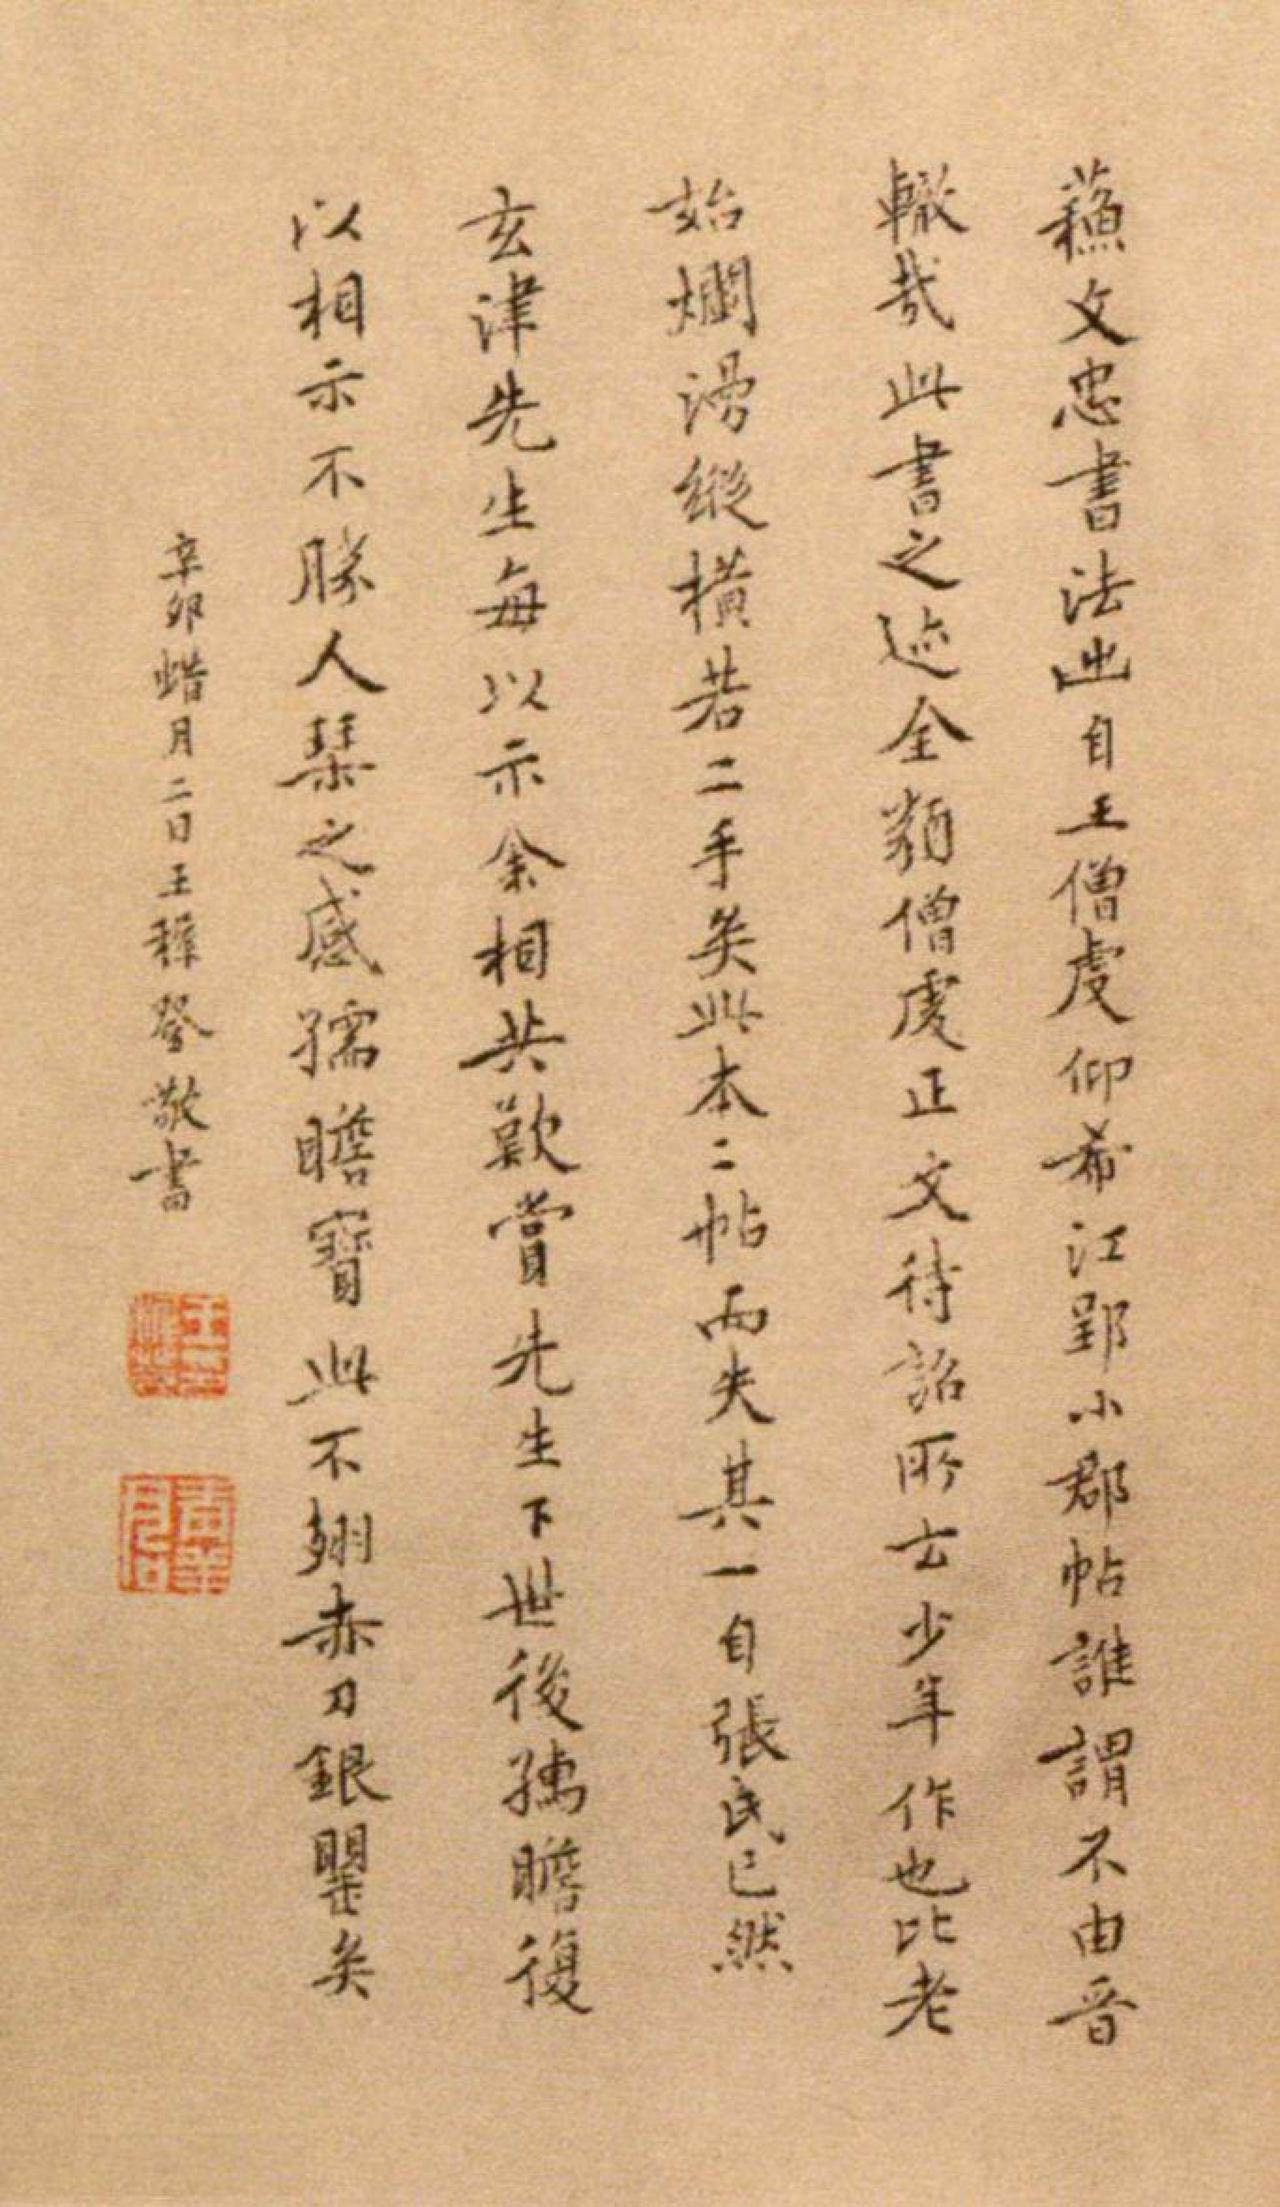 蘓文忠書法出自王僧虔仰希江郢小郡帖誰謂不由晉
轍哉此書之迹全類僧虔正文待詔所云少年作也比老
始爛漫縱橫若二手矣此本二帖而失其一自張氏已然
玄津先生每以示余相共歎賞先生下世後孺瞻復
以相示不勝人琹之感孺瞻寶此不翅赤刀銀瓮矣
辛卯蜡月二日王穉登敬書